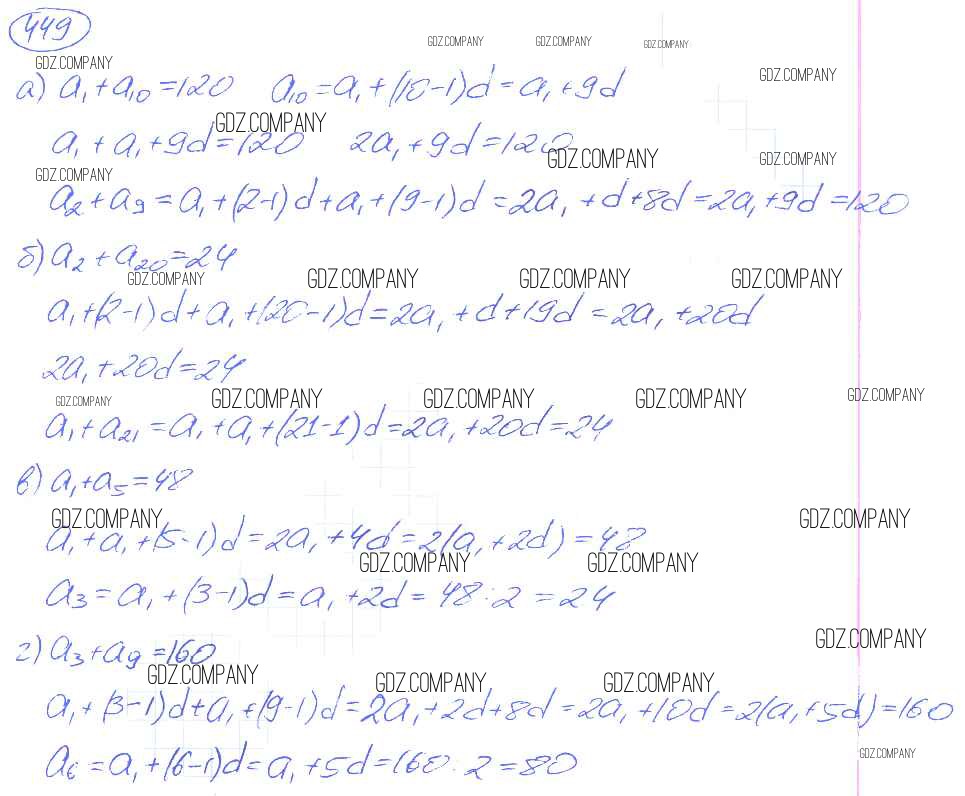 449
GDZ.COMPANY GDZ.COMPANY GDZ.COMPANY
GDZ.COMPANY GDZ.COMPANY
а) a₁ + a₁₀ = 120 a₁₀ = a₁ + (10-1)d = a₁ + 9d
GDZ.COMPANY
a₁ + a₁ + 9d = 120 2a₁ + 9d = 120
GDZ.COMPANY GDZ.COMPANY
GDZ.COMPANY
a₂ + a₉ = a₁ + (2-1)d + a₁ + (9-1)d = 2a₁ + d + 8d = 2a₁ + 9d = 120
б) a₂ + a₂₀ = 24
GDZ.COMPANY GDZ.COMPANY GDZ.COMPANY GDZ.COMPANY
a₁ + (2-1)d + a₁ + (20-1)d = 2a₁ + d + 19d = 2a₁ + 20d
2a₁ + 20d = 24
GDZ.COMPANY GDZ.COMPANY GDZ.COMPANY GDZ.COMPANY GDZ.COMPANY
a₁ + a₂₁ = a₁ + a₁ + (21-1)d = 2a₁ + 20d = 24
в) a₁ + a₅ = 48
GDZ.COMPANY GDZ.COMPANY
a₁ + a₁ + (5-1)d = 2a₁ + 4d = 2(a₁ + 2d) = 48
GDZ.COMPANY GDZ.COMPANY
a₃ = a₁ + (3-1)d = a₁ + 2d = 48 : 2 = 24
GDZ.COMPANY
г) a₃ + a₉ = 160
GDZ.COMPANY GDZ.COMPANY GDZ.COMPANY
a₁ + (3-1)d + a₁ + (9-1)d = 2a₁ + 2d + 8d = 2a₁ + 10d = 2(a₁ + 5d) = 160
GDZ.COMPANY
a₆ = a₁ + (6-1)d = a₁ + 5d = 160 : 2 = 80